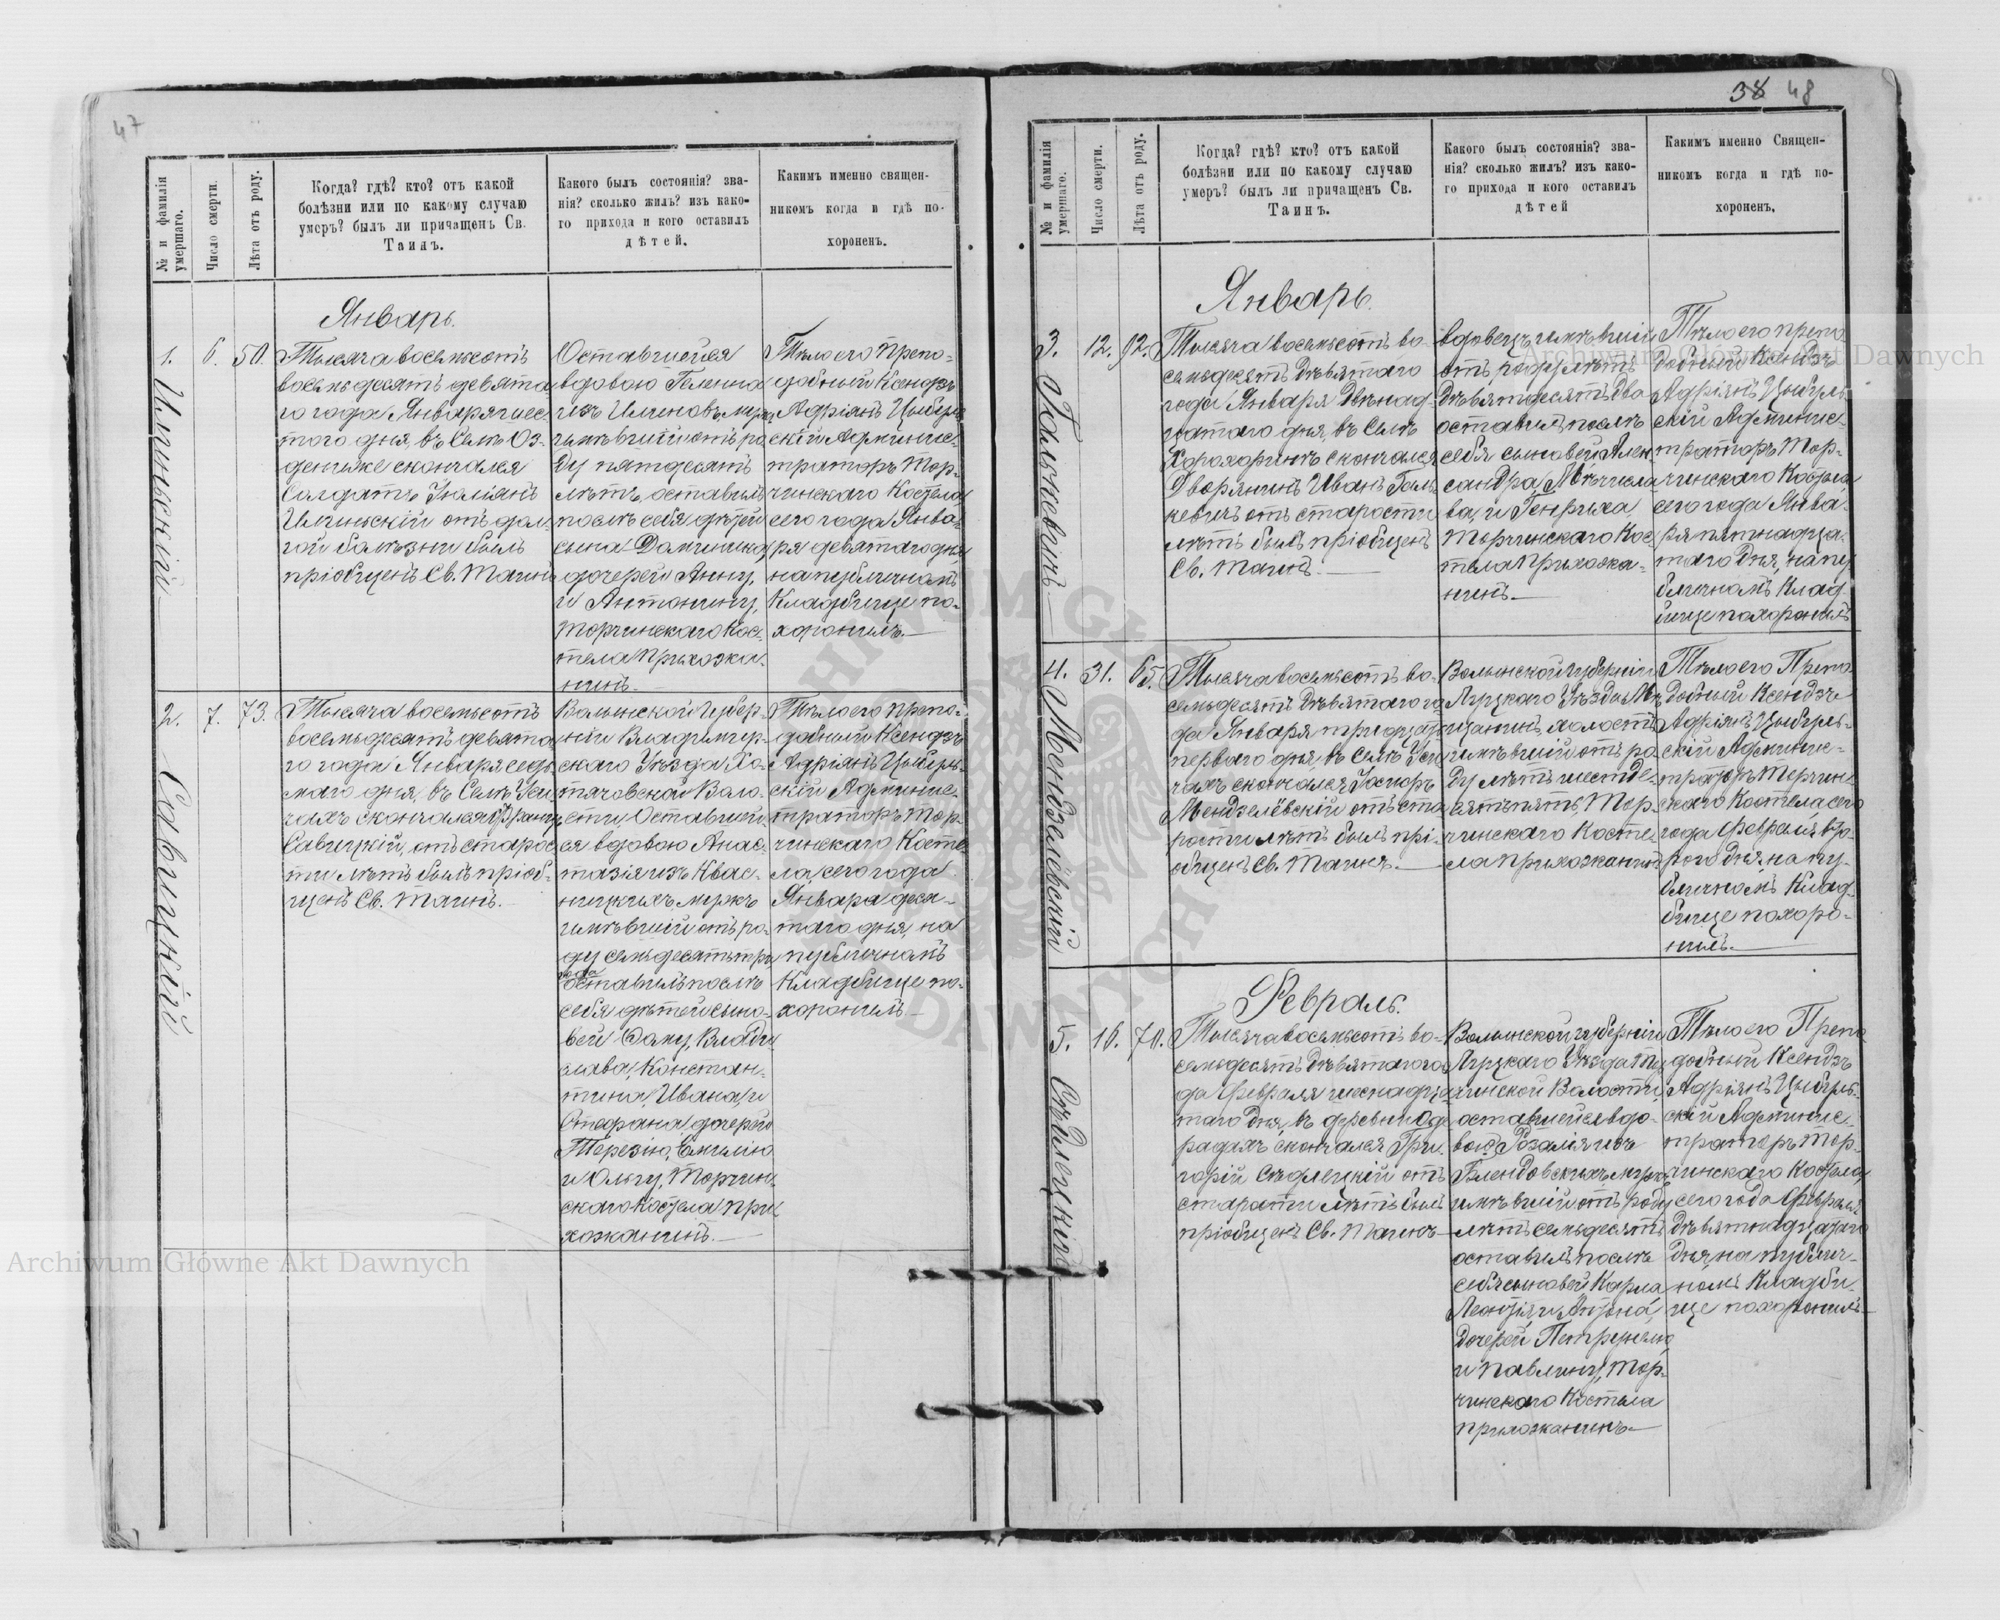 47
№ и фамилія умершаго.
Число смерти.
Лѣта отъ роду.
Когда? гдѣ? кто? отъ какой
болѣзни или по какому случаю
умеръ? былъ ли причащенъ Св.
Таинъ.
Какого былъ состоянія? зва-
нія? сколько жилъ? изъ како-
го прихода и кого оставилъ
дѣтей.
Каким именно священ-
никомъ когда и гдѣ по-
хороненъ.
Январь.
1.
6.
50.
Илчинскій
Тысяча восемьсотъ
восемьдесятъ девята
го года Января шес-
того дня, въ Селѣ Оз-
денижѣ скончался
Солдатъ Юліянъ
Илчинскій отъ дол-
гой болѣзни былъ
пріобщенъ Св. Таинъ
Оставшейся
вдовою
мужъ
имѣвшій отъ ро
ду пятдесятъ
лѣтъ, оставилъ
послѣ себя дѣтей
сына Доминика,
дочерей Анну,
и Антонину,
Торчинскаго Кос-
тела Прихожа-
нинъ.
Тѣло его Препо-
добный Ксендзъ
Адріянъ Цыбуль-
скій Админис-
траторъ Тор-
чинскаго Костела
сего года Янва-
ря девятаго дня
на публичномъ
Кладбище по-
хоронилъ.
2.
7.
73.
Савицкій
Тысяча восемьсотъ
восемьдесятъ девята
го года Января седь
маго дня, въ Селѣ
скончался
Савицкій, отъ старос
ти лѣтъ былъ пріоб-
щенъ Св. Таинъ.
Волынской Губер-
ніи Владимир-
скаго Уѣзда
Воло-
сти, Оставшей-
ся вдовою Анас-
тазія изъ Квас-
ницкихъ мужъ
имѣвшій отъ ро-
ду семьдесятъ три
года
оставилъ послѣ
себя дѣтей сыно-
вей Влади
слава, Констан-
тина, Ивана, и
Стефана, дочерей
Терезію, Емилію
и Ольгу, Торчин-
скаго Костела при
хожанинъ.
Тѣло его препо-
добный Ксендзъ
Адріянъ Цыбуль-
скій Админис-
траторъ Тор-
чинскаго Косте
ла, сего года
Января деся-
таго дня, на
публичномъ
Кладбище по-
хоронилъ
38 48
№ и фамилія умершаго.
Число смерти.
Лѣта отъ роду.
Когда? гдѣ? кто? отъ какой
болѣзни или по какому случаю
умеръ? былъ ли причащенъ Св.
Таинъ.
Какого былъ состоянія? зва-
нія? сколько жилъ? изъ како-
го прихода и кого оставилъ
дѣтей
Каким именно Священ-
никомъ когда и гдѣ по-
хороненъ.
Январь.
3.
12.
92.
Галькевичъ
Тысяча восемьсотъ во-
семьдесятъ девятаго
года Января Двѣнад-
цатаго дня, въ Селѣ
скончался
Дворянинъ Иванъ Галь
кевичъ отъ старости
лѣтъ былъ пріобщенъ
Св. Таинъ.
вдовецъ имѣвшій
отъ роду лѣтъ
девятдесятъ два
оставилъ послѣ
себя сыновей Алек
сандра, Мѣчисла
ва, и Генриха
Торчинскаго Кос
тела Прихожа-
нинъ.
Тѣло его препо
добный Ксендзъ
Адріянъ Цыбуль
скій Админис-
траторъ Тор-
чинскаго Костела
сего года Янва-
ря пятнадца-
таго дня, на пу
бличномъ Клад-
бище похоронилъ
4.
31.
65.
Мендзелёвскій
Тысяча восемьсотъ во-
семьдесятъ девятаго го
да Января тридцать
перваго дня, въ Селѣ
скончался
Мендзелёвскій отъ ста
рости лѣтъ былъ прі-
общенъ Св. Таинъ.
Волынской Губерніи
Луцкаго Уѣзда Мѣ
щанинъ, холостъ
имѣвшій отъ ро-
ду лѣтъ шестьде-
сятъ пять, Тор-
чинскаго Косте-
ла прихожанинъ
Тѣло его Препо
добный Ксендзъ
Адріянъ Цыбуль-
скій Админис-
траторъ Торчин-
скаго Костела сего
года Февраля вто-
рого дня на пу-
бличномъ Клад-
бище похоро-
нилъ.
Февраль.
5.
16.
70.
Сѣдлецкій
Тысяча восемьсотъ во-
семьдесятъ девятаго го
да Февраля шеснадца
таго дня, въ деревни
скончался Гри-
горій Сѣдлецкій отъ
старости лѣтъ былъ
пріобщенъ Св. Таинъ
Волынской губерніи
Луцкаго Уѣзда
Волости,
оставшейся вдо-
вою Розалія изъ
мужъ
имѣвшій отъ роду
лѣтъ семьдесятъ
оставилъ послѣ
себя сыновей Карла
Леонтія и Антона,
дочерей Петрунелю
и Павлину, Тор-
чинскаго Костела
прихожанинъ
Тѣло его Препо
добный Ксендзъ
Адріянъ Цыбуль-
скій Админис-
траторъ Тор-
чинскаго Костела
сего года Февраля
девятнадцатаго
дня, на публич-
номъ Кладби-
ще похоронилъ
Archiwum Główne Akt Dawnych
Archiwum Główne Akt Dawnych